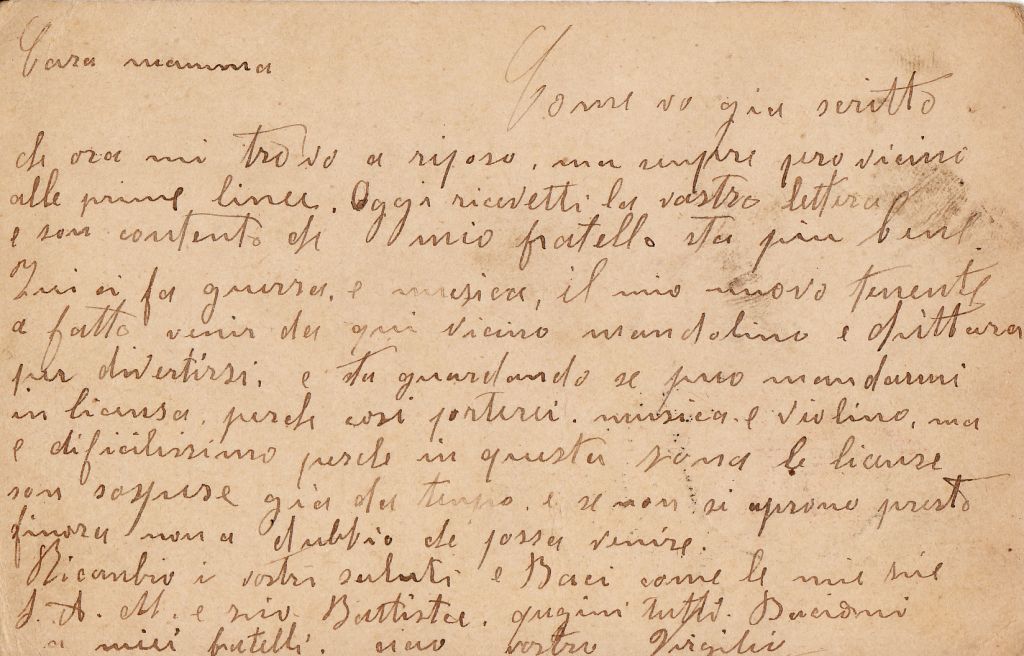 Cara mamma
Come vo gia scritto
che ora mi trovo a riposo, ma sempre pero vicino
alle prime linee. Oggi ricevetti la vostra lettera
e son contento che mio fratello sta piu bene.
Qui ci fa guerra, e musica, il mio nuovo tenente
a fatto venir da qui vicino mandolino e chittara
per divertirsi, e sta guardando se può mandarmi
in licensa, perche cosi porterei musica e violino, ma
e dificilissimo perche in questa zona le licenze
son sospese gia da tempo, e se non si aprono presto
finora non a dubbio che possa venire.
Ricambio i vostri saluti e Baci come le mie sie
A. M. e sio Battista, qugini tutti. Bacioni
a miei fratelli, ciao vostro Virgilio